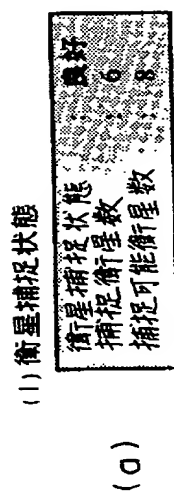 (1)衛星捕捉状態
衛星捕捉状態：良好
捕捉衛星数：6
捕捉可能衛星数：8
(a)